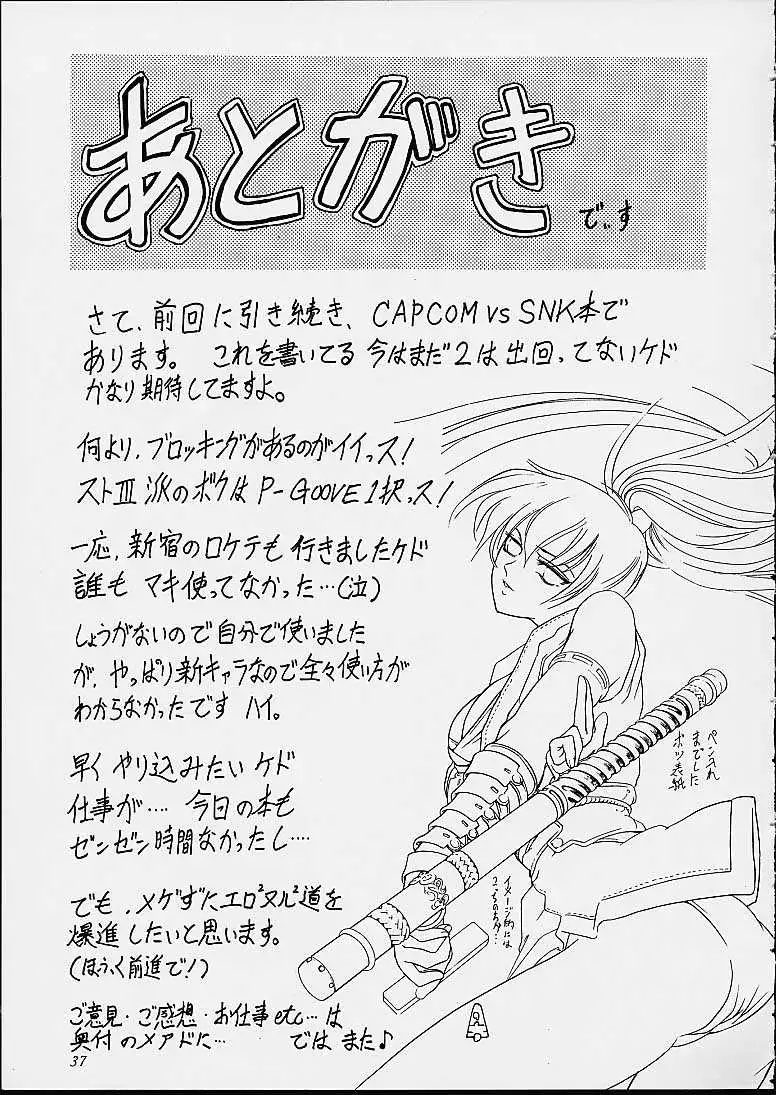 あとがき
でぃす
さて、前回に引き続き、CAPCOM vs SNK本で
あります。 これを書いてる 今はまだ2は出回ってないケド
かなり期待してますよ。
何より、ブロッキングがあるのがイイっス！
ストⅢ 派のボクは P-GOOVE 1択っス！
一応、新宿のロケテも行きましたケド
誰も マキ使ってなかった…(泣)
しょうがないので自分で使いました
が、やっぱり新キャラなので全々使い方が
わからなかったです ハイ。
早く やり込みたい ケド
仕事が…. 今日の本も
ゼンゼン時間なかったし….
でも、メゲずにエロ²ヌル²道を
爆進したいと思います。
(ほふく前進で！)
ご意見・ご感想・お仕事etc…は
奥付のメアドに… では また♪
ペン入れ
までした
ボツ表紙
イメージ的には
37